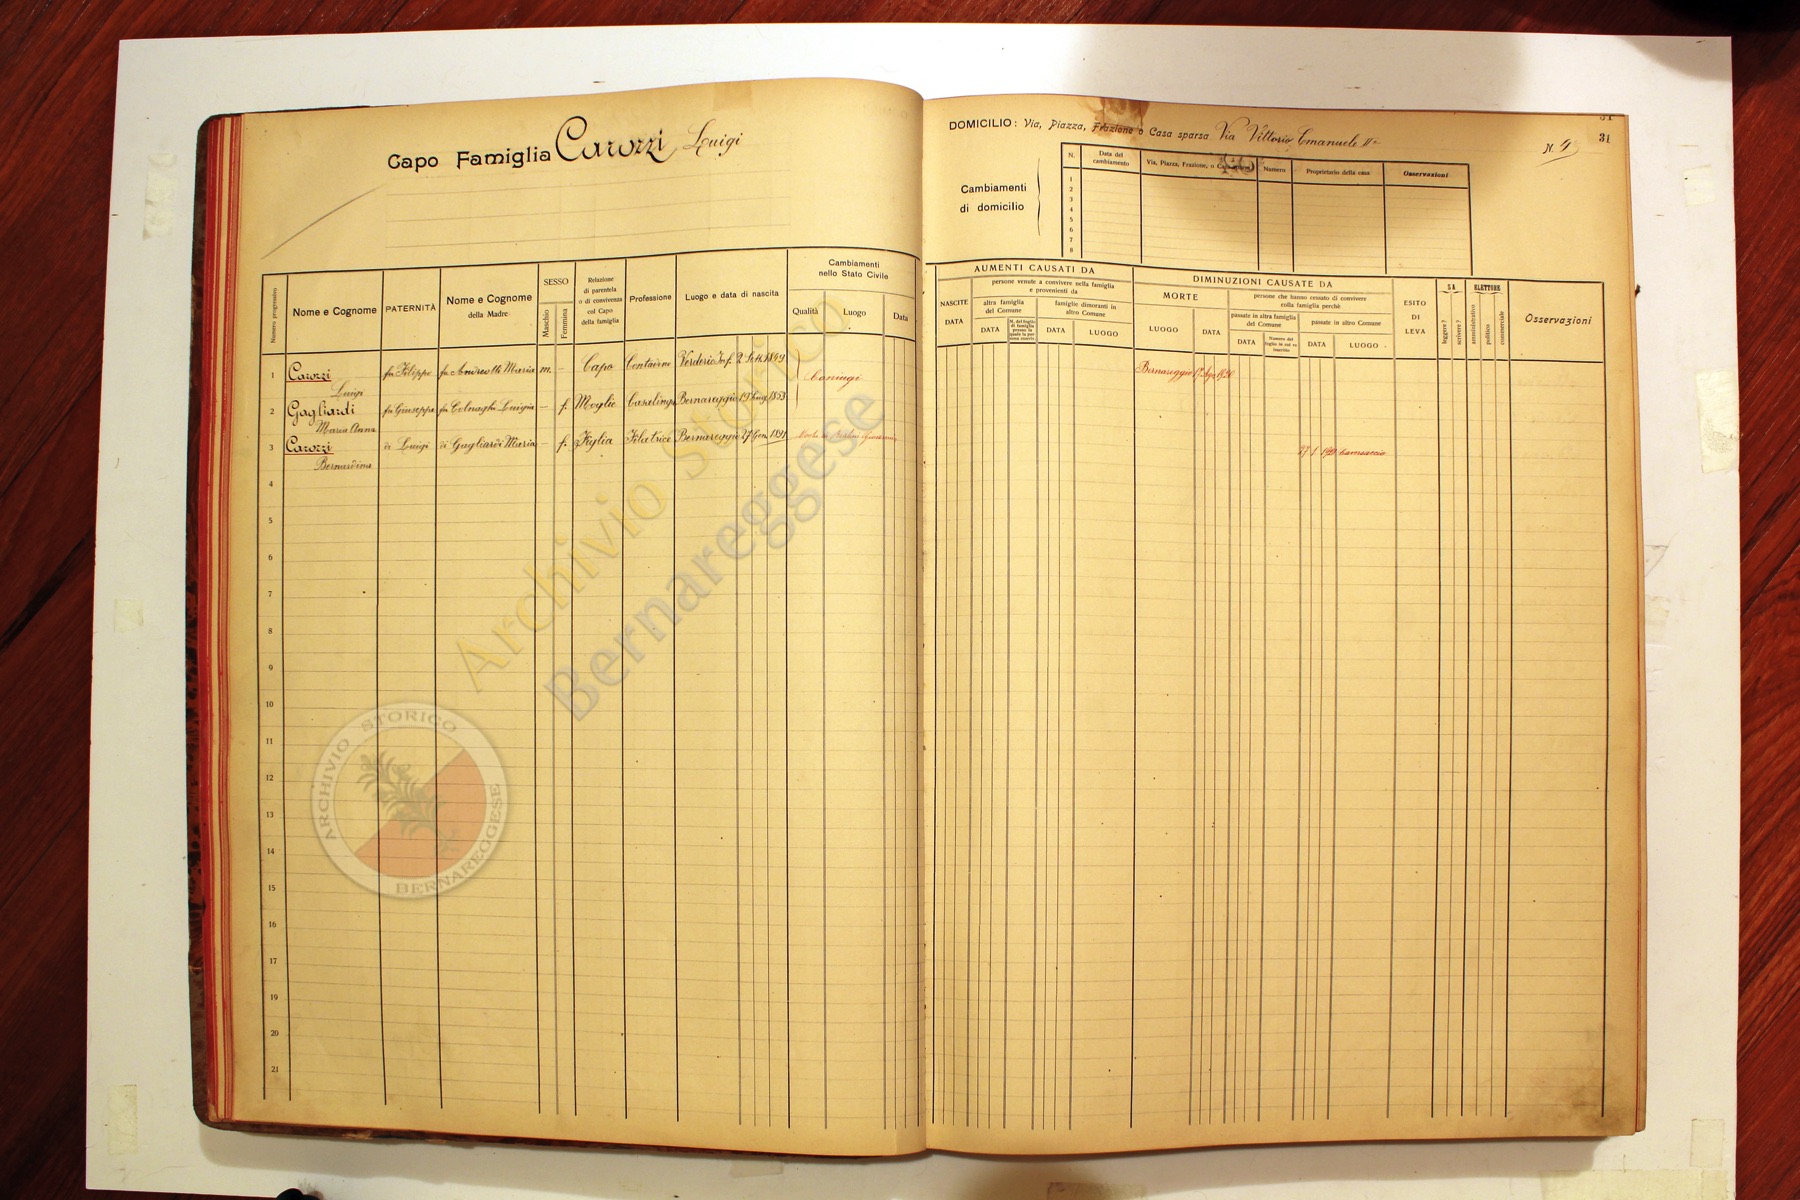 Capo Famiglia Carozzi Luigi
DOMICILIO: Via, Piazza, Frazione o Casa sparsa Via Vittorio Emanuele II°
N. 4
31
31
Cambiamenti
di domicilio
N.
Data del
cambiamento
Via, Piazza, Frazione, o
Numero
Proprietario della casa
Osservazioni
1
2
3
4
5
6
7
8
Numero progressivo
Nome e Cognome
PATERNITÀ
Nome e Cognome
della Madre
SESSO
Maschio
Femmina
Relazione
di parentela
o di convivenza
col Capo
della famiglia
Professione
Luogo e data di nascita
Cambiamenti
nello Stato Civile
Qualità
Luogo
Data
AUMENTI CAUSATI DA
NASCITE
DATA
persone venute a convivere nella famiglia
e provenienti da
altra famiglia
del Comune
DATA
N. del foglio
di famiglia
presso la
quale la per-
sona conviv.
famiglie dimoranti in
altro Comune
DATA
LUOGO
DIMINUZIONI CAUSATE DA
MORTE
LUOGO
DATA
persone che hanno cessato di convivere
colla famiglia perchè
passate in altra famiglia
del Comune
DATA
Numero del
foglio in cui si
inscrive
passate in altro Comune
DATA
LUOGO
ESITO
DI
LEVA
SA
leggere ?
scrivere ?
ELETTORE
amministrativo
politico
commerciale
Osservazioni
1 Carozzi Luigi fu Filippo fu Andreotti Maria m. - Capo Contadino Verderio Inf. 2 Sett. 1849 Coniugi Bernareggio 1920
2 Gagliardi Maria Anna fu Giuseppe fu Colnaghi Luigia - f. Moglie Casalinga Bernareggio 19 1853
3 Carozzi Bernardina di Luigi di Gagliardi Maria - f. Figlia Filatrice Bernareggio 27 Gen. 1891 27 1
4
5
6
7
8
9
10
11
12
13
14
15
16
17
18
19
20
21
Archivio Storico
Bernareggese
ARCHIVIO STORICO
BERNAREGGESE